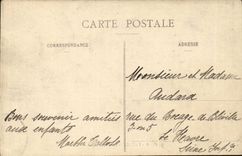 CARTE POSTALE
CORRESPONDANCE
ADRESSE
Monsieur et Madame
Audard
Bons souvenir amitiés
aux enfants
Marthe
rue du Bocage de Bléville
le Havre
Seine Inf